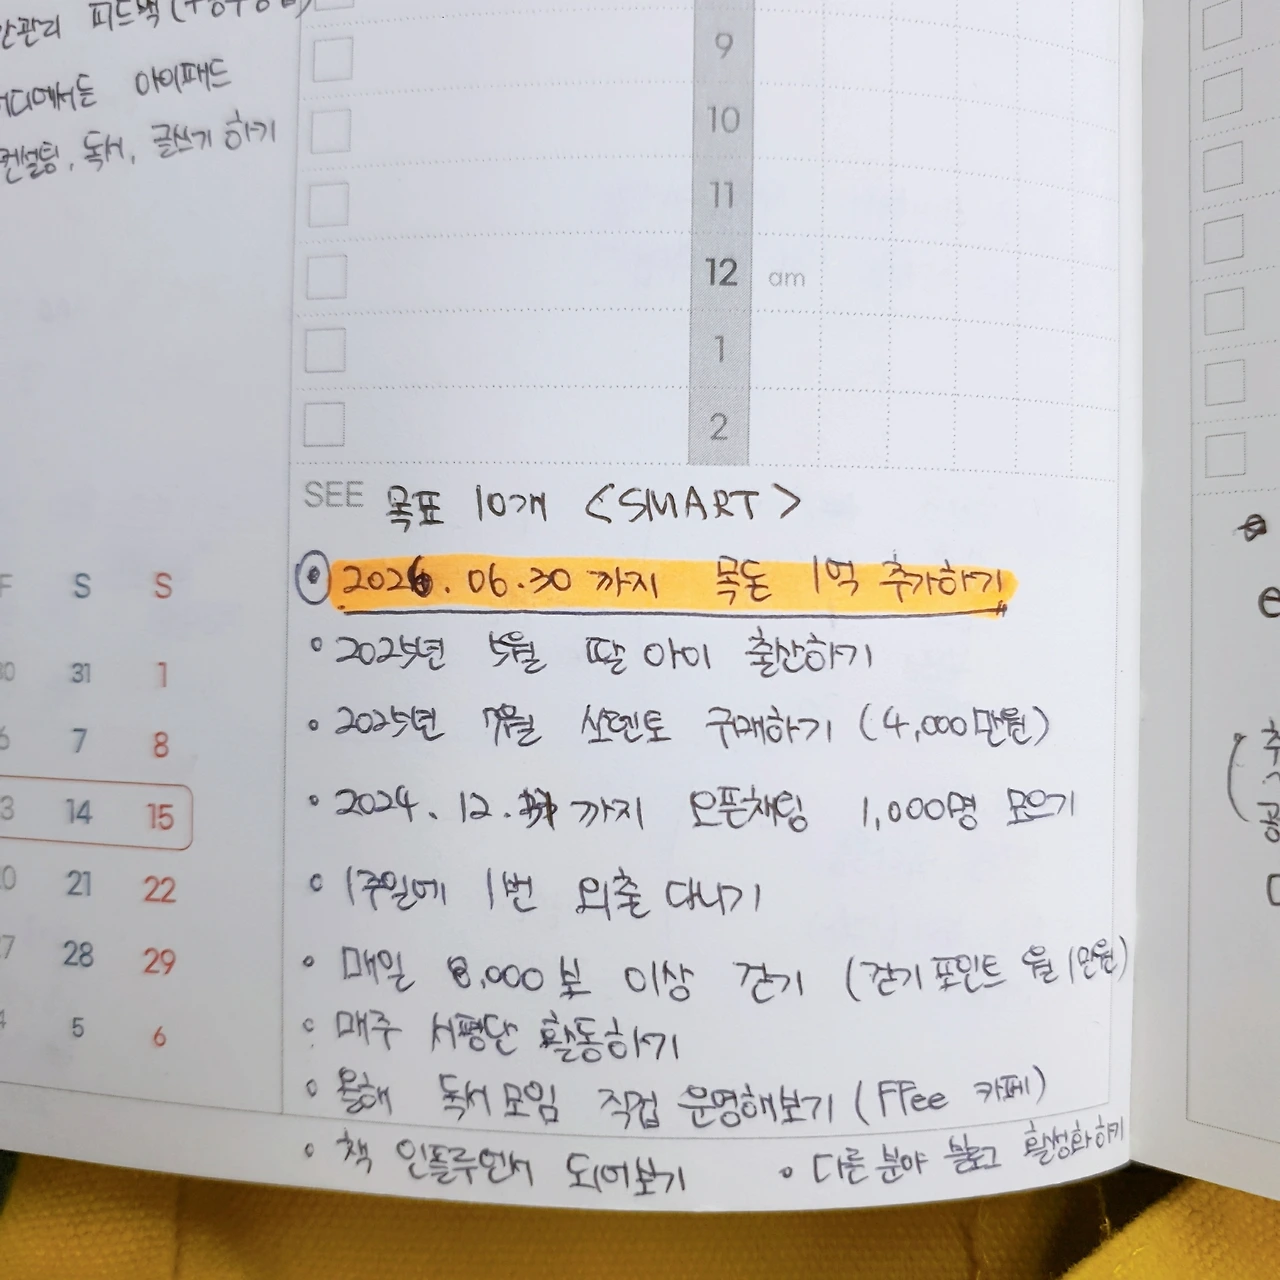 피드백
아이패드
컨설팅, 독서, 글쓰기 하기
9
10
11
12 am
1
2
SEE 목표 10개 <SMART>
2026.06.30 까지 목돈 1억 추가하기
2025년 5월 딸 아이 출산하기
2025년 7월 쏘렌토 구매하기 (4,000만원)
2024.12. 까지 오픈채팅 1,000명 모으기
1주일에 1번 외출 다니기
매일 8,000보 이상 걷기 (걷기 포인트 월 1만원)
매주 서평단 활동하기
올해 독서 모임 직접 운영해보기 (FFee 카페)
책 인플루언서 되어보기 다른 분야 블로그 활성화하기
F S S
31 1
7 8
14 15
21 22
28 29
5 6